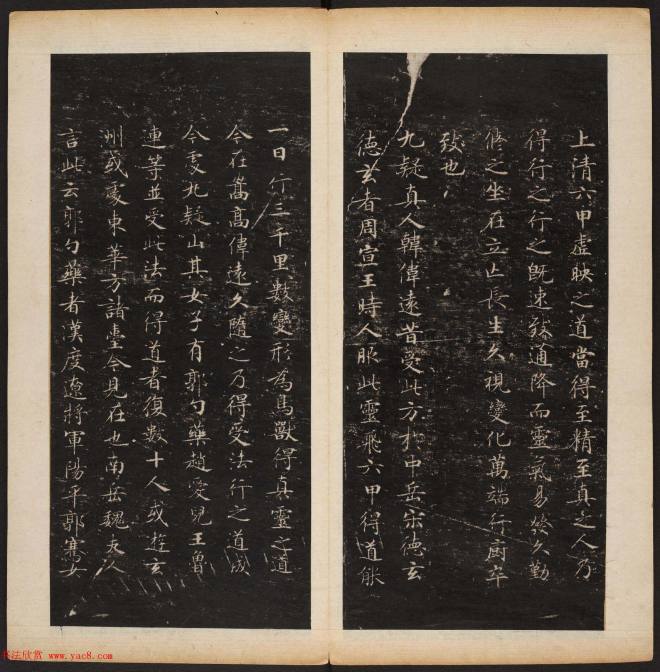 上清六甲虚映之道當得至精至真之人乃
得行之行之既速致通降而靈氣易發久勤
脩之坐在立亡長生久視變化萬端行廚卒
致也
九疑真人韓偉遠昔受此方於中岳宋德玄
德玄者周宣王時人服此靈飛六甲得道能
一日行三千里數變形為鳥獸得真靈之道
今在嵩高偉遠久隨之乃得受法行之道成
今處九疑山其女子有郭勺藥趙愛兒王魯
連等並受此法而得道者復數十人或遊玄
洲或處東華方諸臺今見在也南岳魏夫人
言此云郭勺藥者漢度遼將軍陽平郭騫女
书法欣赏 www.yac8.com